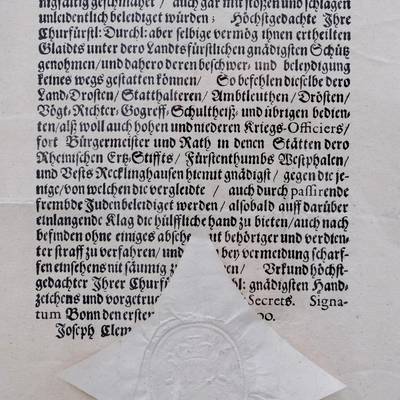 nigfaltig geschmähet / auch gar mit stoßen und schlagen
unleidentlich beleidiget würden; Höchstgedachte Ihre
Churfürstl: Durchl: aber selbige vermög ihnen ertheilten
Glaidts unter dero Landtsfürstlichen gnädigsten Schütz
genohmen / und dahero deren beschwer- und beleydigung
keines wegs gestatten können / So befehlen dieselbe dero
Land-Drosten / Statthalteren / Ambtleuthen / Drösten /
Vögt-Richter / Gogreff-Schultheiß- und übrigen bedien-
ten / alß woll auch hohen und niederen Kriegs-Officiers /
fort Bürgermeister und Rath in denen Stätten dero
Rheinischen Ertz-Stiffts / Fürstenthumbs Westphalen /
und Vests Recklinghausen hiemit gnädigst / gegen die je-
nige / von welchen die vergleidte / auch durch passirende
frembde Juden beleidiget werden / alsobald auff darüber
einlangende Klag die hülffliche hand zu bieten / auch nach
befinden ohne einiges absche ut behöriger und verdien-
ter straff zu verfahren / und bey vermeidung scharf-
fen einsehens nit säumig z / Urkund höchst-
gedachter Ihrer Churf hl: gnädigsten Hand-
zeichens und vorgetruc Secrets. Signa-
tum Bonn den ersten 00.
Joseph Clem